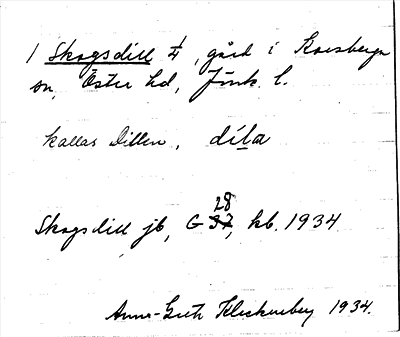 1 Skogsdill 1/4, gård i Korsberga
sn, Östra hd, Jönk. l.
kallas Dillen, díla
Skogsdill jb, G 28 37, kb. 1934
Anna-Greta Klickenberg 1934.